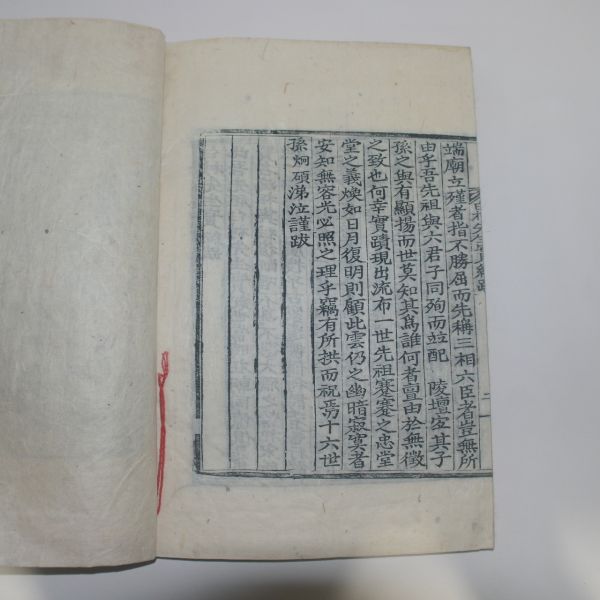 端廟立殣者指不勝屈而先稱三相六臣者豈無所
由乎吾先祖與六君子同殉而並配 陵壇宜其子
孫之與有顯揚而世莫知其爲誰何者亶由於無徵
之致也何幸實蹟現出流布一世先祖蹇蹇之忠堂
堂之義煥如日月復明則顧此雲仍之幽暗寂寞者
安知無容光必照之理乎竊有所拱而祝焉十六世
孫炯碩涕泣謹跋